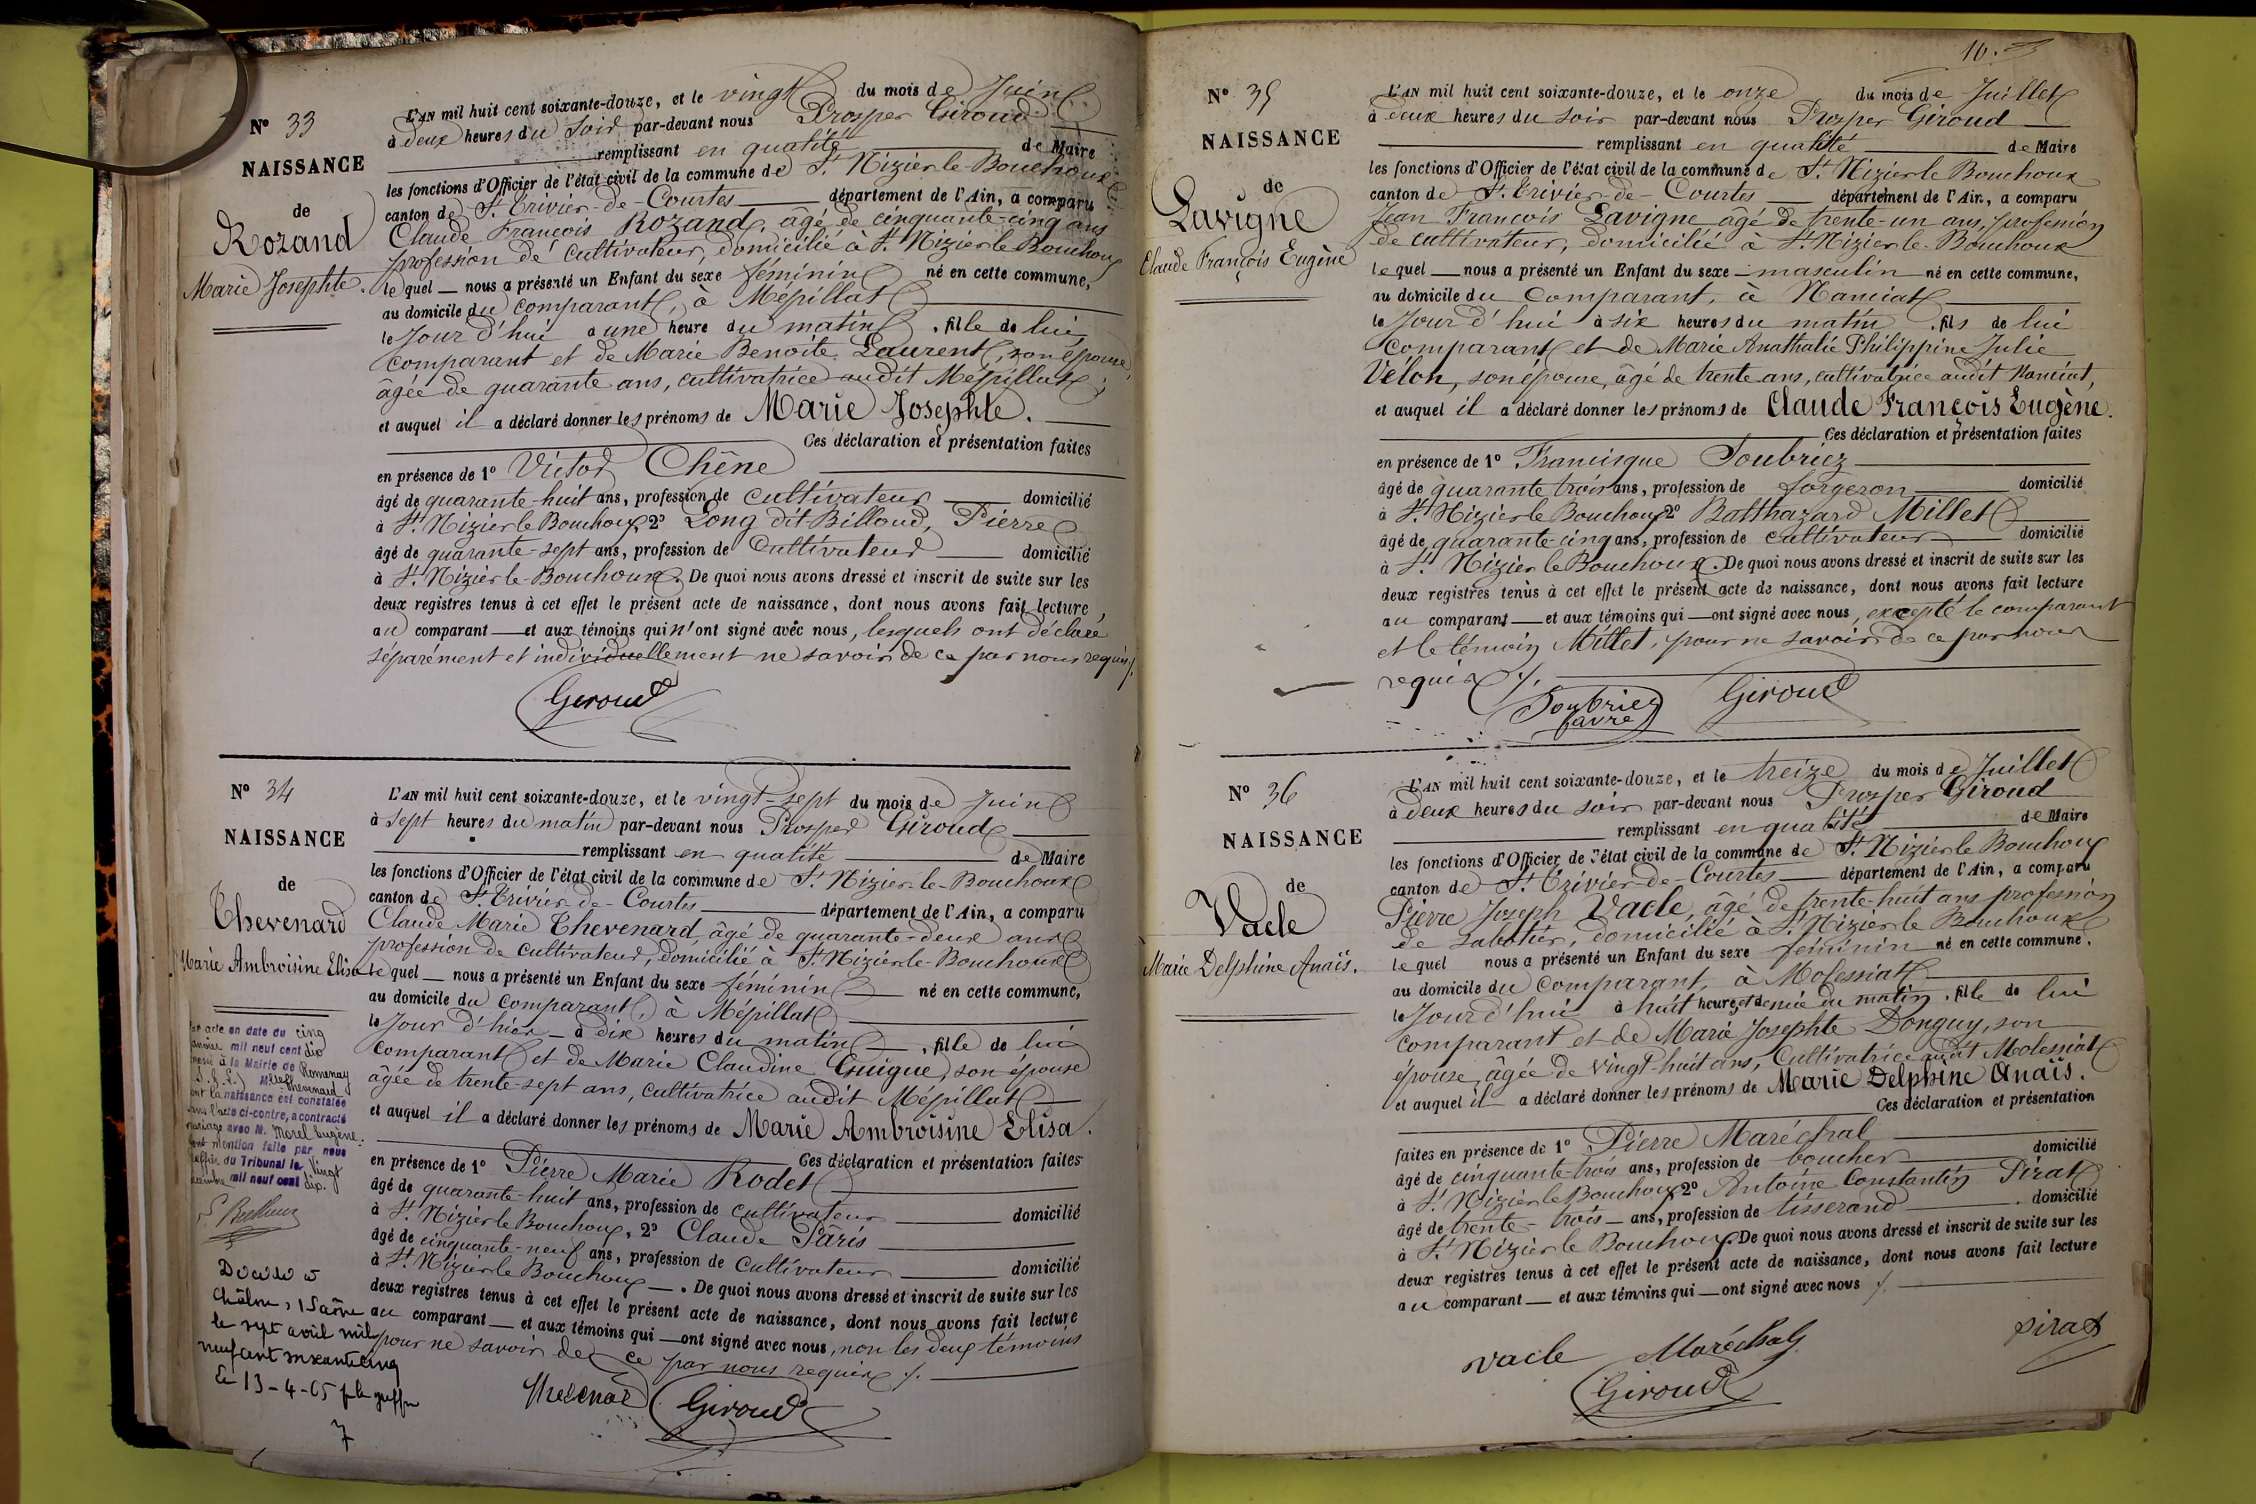 N° 33
NAISSANCE
de
Rozand
Marie Josephte.
L'AN mil huit cent soixante-douze, et le vingt du mois de Juin
à deux heures du soir par-devant nous Prosper Giroud
remplissant en qualité de Maire
les fonctions d'Officier de l'état civil de la commune de St. Nizier le Bouchoux
canton de St. Trivier-de-Courtes département de l'Ain, a comparu
Claude François Rozand, âgé de cinquante-cinq ans
profession de cultivateur, domicilié à St. Nizier le Bouchoux
lequel nous a présenté un Enfant du sexe féminin né en cette commune,
au domicile du comparant, à Mépillat
le Jour d'hui à une heure du matin, fille de lui
comparant et de Marie Benoite Laurent, son épouse,
âgée de quarante ans, cultivatrice audit Mépillat;
et auquel il a déclaré donner les prénoms de Marie Josephte.
Ces déclaration et présentation faites
en présence de 1° Victor Chêne
âgé de quarante-huit ans, profession de cultivateur domicilié
à St. Nizier le Bouchoux 2° Long dit Billoud, Pierre
âgé de quarante-sept ans, profession de Cultivateur domicilié
à St. Nizier le Bouchoux. De quoi nous avons dressé et inscrit de suite sur les
deux registres tenus à cet effet le présent acte de naissance, dont nous avons fait lecture
au comparant et aux témoins qui n'ont signé avec nous, lesquels ont déclaré
séparément et individuellement ne savoir de ce par nous requis ./.
Giroud
N° 34
NAISSANCE
de
Thevenard
Marie Ambroisine Elisa
L'AN mil huit cent soixante-douze, et le vingt-sept du mois de Juin
à sept heures du matin par-devant nous Prosper Giroud
remplissant en qualité de Maire
les fonctions d'Officier de l'état civil de la commune de St. Nizier-le-Bouchoux
canton de St. Trivier-de-Courtes département de l'Ain, a comparu
Claude Marie Thevenard, âgé de quarante-deux ans
profession de cultivateur, domicilié à St. Nizier-le-Bouchoux
lequel nous a présenté un Enfant du sexe féminin né en cette commune,
au domicile du comparant, à Mépillat
le Jour d'hier à dix heures du matin, fille de lui
comparant et de Marie Claudine Guigue, son épouse
âgée de trente-sept ans, cultivatrice audit Mépillat
et auquel il a déclaré donner les prénoms de Marie Ambroisine Elisa.
Ces déclaration et présentation faites
en présence de 1° Pierre Marie Rodet
âgé de quarante-huit ans, profession de cultivateur domicilié
à St. Nizier le Bouchoux, 2° Claude Pâris
âgé de cinquante-neuf ans, profession de cultivateur domicilié
à St. Nizier le Bouchoux. De quoi nous avons dressé et inscrit de suite sur les
deux registres tenus à cet effet le présent acte de naissance, dont nous avons fait lecture
au comparant et aux témoins qui ont signé avec nous, non les deux témoins
pour ne savoir de ce par nous requis ./.
Giroud
acte en date du cinq
mil neuf cent dix
à la Mairie de Romenay
(S. & L.) Melle Thevenard
dont la naissance est constatée
dans l'acte ci-contre, a contracté
mariage avec M. Morel Eugène.
dont mention faite par nous
greffier du Tribunal le vingt
mil neuf cent dix.
Décédée à
Châlon s/Saône
le sept avril mil
neuf cent soixante cinq
Le 13-4-65 p le greffier
N° 35
NAISSANCE
de
Lavigne
Claude François Eugène
10.
L'AN mil huit cent soixante-douze, et le onze du mois de Juillet
à deux heures du soir par-devant nous Prosper Giroud
remplissant en qualité de Maire
les fonctions d'Officier de l'état civil de la commune de St. Nizier le Bouchoux
canton de St. Trivier-de-Courtes département de l'Ain, a comparu
Jean François Lavigne âgé de trente-un ans, profession
de cultivateur, domicilié à St. Nizier-le-Bouchoux
lequel nous a présenté un Enfant du sexe masculin né en cette commune,
au domicile du comparant, à Nanciat
le Jour d'hui à six heures du matin, fils de lui
comparant et de Marie Anathalie Philippine Julie
Vélon, son épouse, âgé de trente ans, cultivatrice audit Nanciat,
et auquel il a déclaré donner les prénoms de Claude François Eugène.
Ces déclaration et présentation faites
en présence de 1° Francisque Joubriez
âgé de quarante trois ans, profession de forgeron domicilié
à St. Nizier le Bouchoux 2° Balthazard Millet
âgé de quarante-cinq ans, profession de cultivateur domicilié
à St. Nizier le Bouchoux. De quoi nous avons dressé et inscrit de suite sur les
deux registres tenus à cet effet le présent acte de naissance, dont nous avons fait lecture
au comparant et aux témoins qui ont signé avec nous, excepté le comparant
et le témoin Millet, pour ne savoir de ce par nous
requis ./.
Joubriez favre Giroud
N° 36
NAISSANCE
de
Vacle
Marie Delphine Anaïs.
L'AN mil huit cent soixante-douze, et le treize du mois de Juillet
à deux heures du soir par-devant nous Prosper Giroud
remplissant en qualité de Maire
les fonctions d'Officier de l'état civil de la commune de St. Nizier le Bouchoux
canton de St. Trivier-de-Courtes département de l'Ain, a comparu
Pierre Joseph Vacle, âgé de trente-huit ans profession
de sabotier, domicilié à St. Nizier le Bouchoux
lequel nous a présenté un Enfant du sexe féminin né en cette commune,
au domicile du comparant, à Molessiat
le Jour d'hui à huit heures et demie du matin, fille de lui
comparant et de Marie Josephte Donguy, son
épouse, âgée de vingt-huit ans, Cultivatrice audit Molessiat
et auquel il a déclaré donner les prénoms de Marie Delphine Anaïs.
Ces déclaration et présentation
faites en présence de 1° Pierre Maréchal
âgé de cinquante-trois ans, profession de boucher domicilié
à St. Nizier le Bouchoux 2° Antoine Constantin Pirat
âgé de trente-trois ans, profession de tisserand domicilié
à St. Nizier le Bouchoux. De quoi nous avons dressé et inscrit de suite sur les
deux registres tenus à cet effet le présent acte de naissance, dont nous avons fait lecture
au comparant et aux témoins qui ont signé avec nous ./.
Vacle Maréchal pirat
Giroud